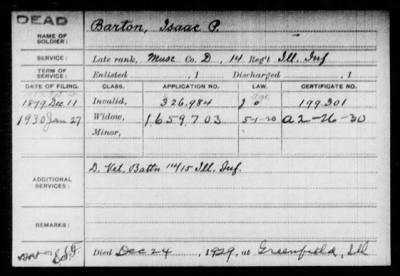 DEAD
NAME OF SOLDIER: Barton, Isaac P.
SERVICE: Late rank, Musc Co. D, 14 Reg't Ill. Inf
TERM OF SERVICE: Enlisted , 1 Discharged , 1
DATE OF FILING. CLASS. APPLICATION NO. LAW. CERTIFICATE NO.
1879 Dec. 11 Invalid, 326,984 199301
1930 Jan 27 Widow, 1659703 5-1-20 A2-26-30
Minor,
ADDITIONAL SERVICES: D. Vet. Battn 14/15 Ill. Inf.
REMARKS:
Died Dec 24, 1929, at Greenfield, Ill